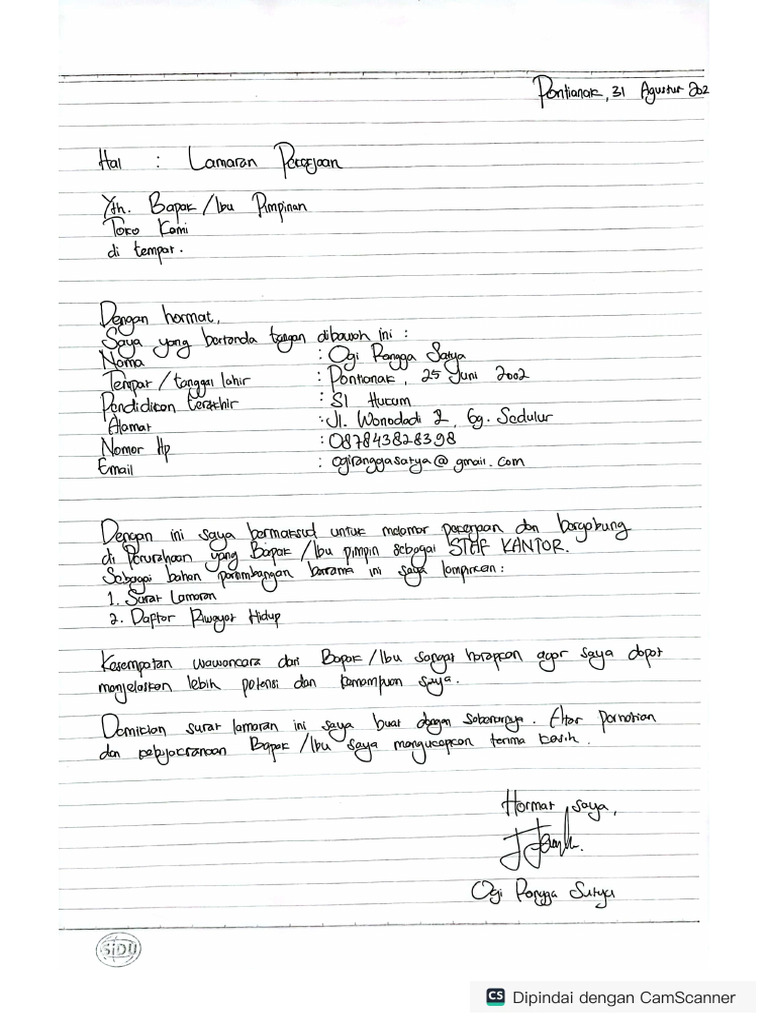 Pontianak, 31 Agustus 202
Hal : Lamaran Pekerjaan
Yth. Bapak/Ibu Pimpinan
Toko Kami
di tempat.
Dengan hormat,
Saya yang bertanda tangan dibawah ini :
Nama : Ogi Rangga Satya
Tempat/tanggal lahir : Pontianak, 25 Juni 2002
Pendidikan terakhir : S1 Hukum
Alamat : Jl. Wonodadi 2, Gg. Sedulur
Nomor Hp : 087843828398
Email : ogiranggasatya@gmail.com
Dengan ini saya bermaksud untuk melamar pekerjaan dan bergabung
di Perusahaan yang Bapak/Ibu pimpin sebagai STAF KANTOR.
Sebagai bahan pertimbangan bersama ini saya lampirkan:
1. Surat Lamaran
2. Daftar Riwayat Hidup
Kesempatan wawancara dari Bapak/Ibu sangat harapkan agar saya dapat
menjelaskan lebih potensi dan kemampuan saya.
Demikian surat lamaran ini saya buat dengan sebenarnya. Atas perhatian
dan kebijaksanaan Bapak/Ibu saya mengucapkan terima kasih.
Hormat saya,
Ogi Rangga Satya
SiDU
CS Dipindai dengan CamScanner